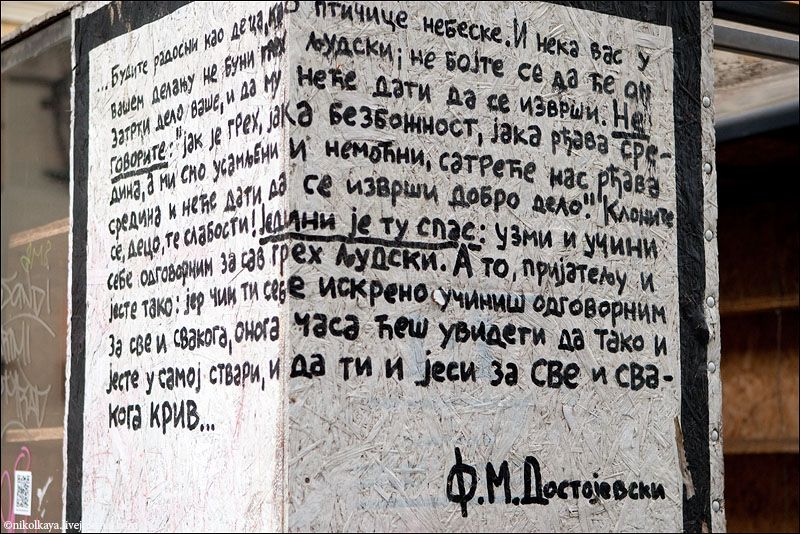 ...Будите радосни као деца, као птичице небеске. И нека вас у
вашем делању не буни грех људски; не бојте се да ће он
затрти дело ваше, и да му неће дати да се изврши. Не
говорите: "јак је грех, јака безбожност, јака рђава сре-
дина, а ми смо усамљени и немоћни, сатреће нас рђава
средина и неће дати да се изврши добро дело." Клоните
се, децо, те слабости! Једини је ту спас: узми и учини
себе одговорним за сав грех људски. А то, пријатељу и
јесте тако: јер чим ти себе искрено учиниш одговорним
за све и свакога, онога часа ћеш увидети да тако и
јесте у самој ствари, и да ти и јеси за све и сва-
кога КРИВ...
Ф.М.Достојевски